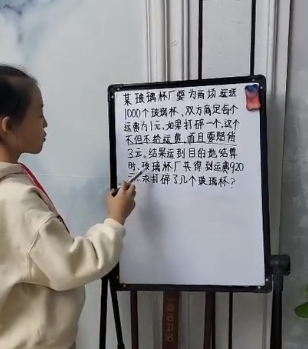 某玻璃杯厂要为商场运送
1000个玻璃杯,双方商定每个
运费为1元,如果打碎一个,这个
不但不给运费,而且要赔偿
3元,结果运到目的地结算
时,玻璃杯厂共得到运费920
元,求打碎了几个玻璃杯?